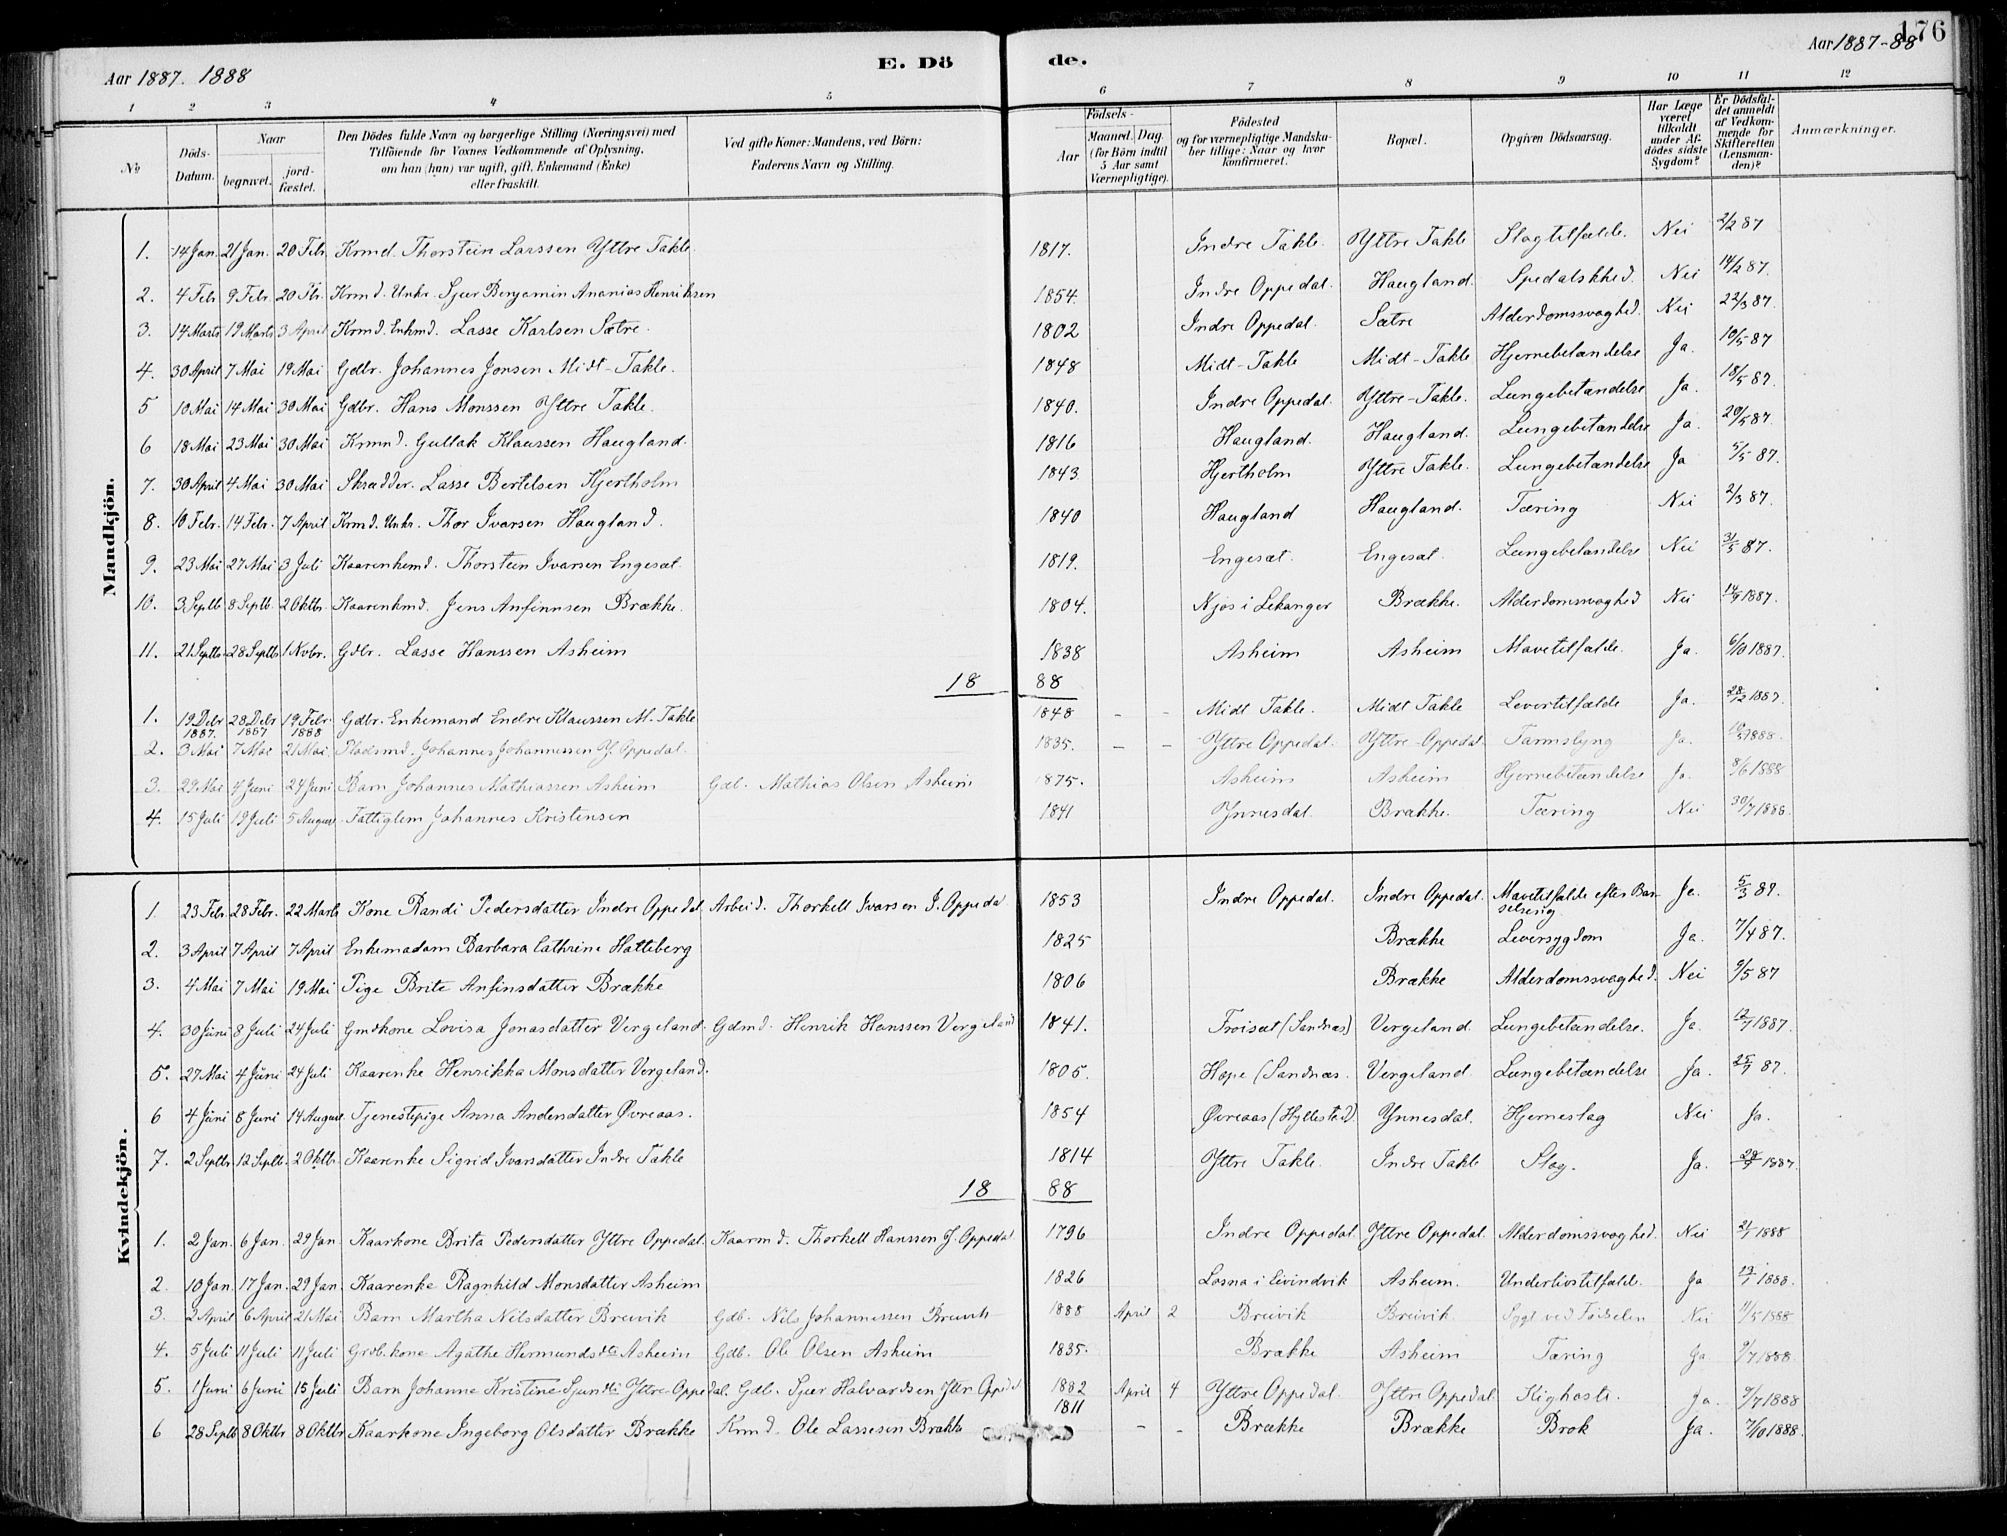 176
Aar 1887. 1888
E. Dö
de.
Aar 1887-88
1 2 3 4 5 6 7 8 9 10 11 12
№
Döds-Datum.
Naar
begravet.
jordfæstet.
Den Dödes fulde Navn og borgerlige Stilling (Næringsvei) med
Tilföiende for Voxnes Vedkommende af Oplysning,
om han (hun) var ugift, gift, Enkemand (Enke)
eller fraskilt.
Ved gifte Koner: Mandens, ved Börn:
Faderens Navn og Stilling.
Födsels-
Aar
Maaned. Dag.
(for Börn indtil
5 Aar samt
Værnepligtige).
Födested
og for værnepligtige Mandskaber tillige: Naar og hvor
konfirmeret.
Bopæl.
Opgiven Dödsaarsag.
Har Læge
været
tilkaldt
under Afdödes sidste
Sygdom?
Er Dödsfaldet anmeldt
af Vedkommende for
Skifteretten
(Lensmanden)?
Anmærkninger.
Mandkjön.
1. 14 Jan. 21 Jan. 20 Febr. Krmd. Thorstein Larssen Yttre Takle 1817. Indre Takle. Yttre Takle Slagtilfælde. Nei 2/2 87
2. 4 Febr 9 Febr 20 Fbr. Krmd. Unkr. Sjur Benjamin Ananias Henriksen 1854. Indre Oppedal. Haugland. Spedalskhed. Nei 14/2 87.
3. 14 Marts 19 Marts 3 April Krmd. Enkmd. Lasse Karlsen Sætre. 1802 Indre Oppedal. Sætre Alderdomssvaghed. Nei 22/3 87.
4. 30 April 7 Mai 19 Mai Gdbr. Johannes Jonsen Midt-Takle. 1848 Midt-Takle Midt-Takle Hjernebetændelse Ja. 10/5 87
5 10 Mai 14 Mai 30 Mai Gdbr. Hans Monssen Yttre Takle. 1840. Indre Oppedal. Yttre-Takle. Lungebetændelse Ja. 18/5 87.
6 18 Mai 23 Mai 30 Mai Krmd. Gullak Klaussen Haugland. 1816 Haugland. Haugland. Lungebetændelse Ja. 20/5 87.
7. 30 April 4 Mai 30 Mai Skrædder. Lasse Bertelsen Hjertholm 1843 Hjertholm Yttre Takle. Lungebetændelse Ja 5/5 87.
8. 10 Febr. 14 Febr. 7 April Krmd. Unkr. Thor Ivarsen Haugland. 1840 Haugland Haugland. Tæring Nei 2/3 87.
9. 23 Mai 27 Mai 3 Juli Kaarenkemd. Thorstein Ivarsen Engesæt. 1819. Engesæt. Engesæt. Lungebetændelse Nei 31/5 87.
10. 3 Septb 8 Septb. 2 Oktbr. Kaarenkmd. Jens Anfinnsen Brække. 1804. Njøs i Lekanger Brække. Alderdomssvaghed Nei 14/9 1887.
11. 21 Septbr. 28 Septb 1 Nvbr. Gdbr. Lasse Hanssen Asheim 1838 Asheim Asheim Mavetilfælde. Ja. 6/10 1887.
18 88
1. 19 Debr 1887. 28 Debr 1887 19 Febr. 1888 Gdbr. Enkemand Endre Klaussen M. Takle 1848 - - Midt Takle. Midt Takle Levertilfælde Ja. 28/12 1887.
2. 3 Mai 7 Mai 21 Mai Pladsmd. Johannes Johannessen Y. Oppedal. 1835. - - Yttre Oppedal. Yttre-Oppedal. Tarmslyng Ja. 1888.
3. 29 Mai 4 Juni 24 Juni Barn Johannes Mathiassen Asheim Gdb. Mathias Olsen Asheim 1875. Asheim Asheim Hjernebetændelse Ja. 8/6 1888
4. 15 Juli 19 Juli 5 August Fattiglem Johannes Kristensen 1841 Ynnesdal. Brække. Tæring Nei 30/7 1888.
Kvindekjön.
1. 23 Febr. 28 Febr. 22 Marts Kone Randi Pedersdatter Indre Oppedal Arbeid. Thorkell Ivarsen I. Oppedal 1853 Indre Oppedal. Indre Oppedal. Mavetilfælde efter Barselseng Ja. 5/3 87.
2. 3 April 7 April 7 April Enkemadam Barbara Cathrine Hatleberg 1825 Brække Leversygdom Ja. 7/4 87.
3. 4 Mai 7 Mai 19 Mai Pige Brite Anfinsdatter Brække 1806 Brække Alderdomssvaghed. Nei 9/5 87
4. 30 Juni 8 Juli 24 Juli Gmdkone Lovisa Jonasdatter Vergeland. Gdmd. Henrik Hanssen Vergeland 1841. Troisæt (Sandnæs) Vergeland. Lungebetændelse. Ja. 12/7 1887.
5. 27 Mai 4 Juni 24 Juli Kaarenke Henrikka Monsdatter Vergeland. 1805. Hope (Sandnæs. Vergeland. Lungebetændelse Ja. 25/7 87.
6 4 Juni 8 Juni 14 August Tjenestepige Anna Andersdatter Øvreaas. 1854 Øvreaas (Hyllestad) Ynnesdal. Hjerneslag Nei Ja.
7. 2 Septbr 12 Septb. 2 Oktbr. Kaarenke Sigrid Ivarsdatter Indre Takle 1814 Yttre Takle. Indre Takle Slag. Ja. 28/9 1887.
18 88
1. 2 Jan. 6 Jan. 29 Jan. Kaarkone Brita Pedersdatter Yttre Oppedal. Kaarmd. Thorkell Hanssen Y. Oppedal 1796 Indre Oppedal Yttre Oppedal. Alderdomssvaghed. Nei 2/1 1888
2. 10 Jan. 17 Jan. 29 Jan. Kaarenke Ragnhild Monsdatter Asheim 1826 Losna i Eivindvik Asheim. Underlivstilfæld. Ja 12/1 1888.
3. 2 April 6 April 21 Mai Barn Martha Nilsdatter Breivik Gdb. Nils Johannessen Breivik 1888 April 2 Breivik Breivik. Sygt ved Fødselen Nei 11/5 1888
4. 5 Juli 11 Juli 11 Juli Grdb. kone Agathe Hermundsdtr Asheim Gdb. Ole Olsen Asheim 1835. Brække Asheim Tæring Ja 9/7 1888.
5. 1 Juni 6 Juni 15 Juli Barn Johanne Kristine Sjursdtr Yttre-Oppedal. Gdb. Sjur Halvardsen Yttr. Oppedal 1882 April 4 Yttre Oppedal. Yttre Oppedal Kighoste. Ja. 9/7 1888
6 28 Septb 8 Oktbr 8 Oktbr Kaarkone Ingeborg Olsdatter Brække Krmd. Ole Lassesen Brække 1811 - - Brække Brække Brok Ja. 7/10 1888.